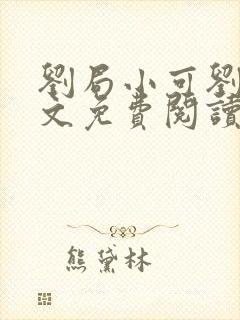 劉局小可劉
文免費閱讀
熊黛林